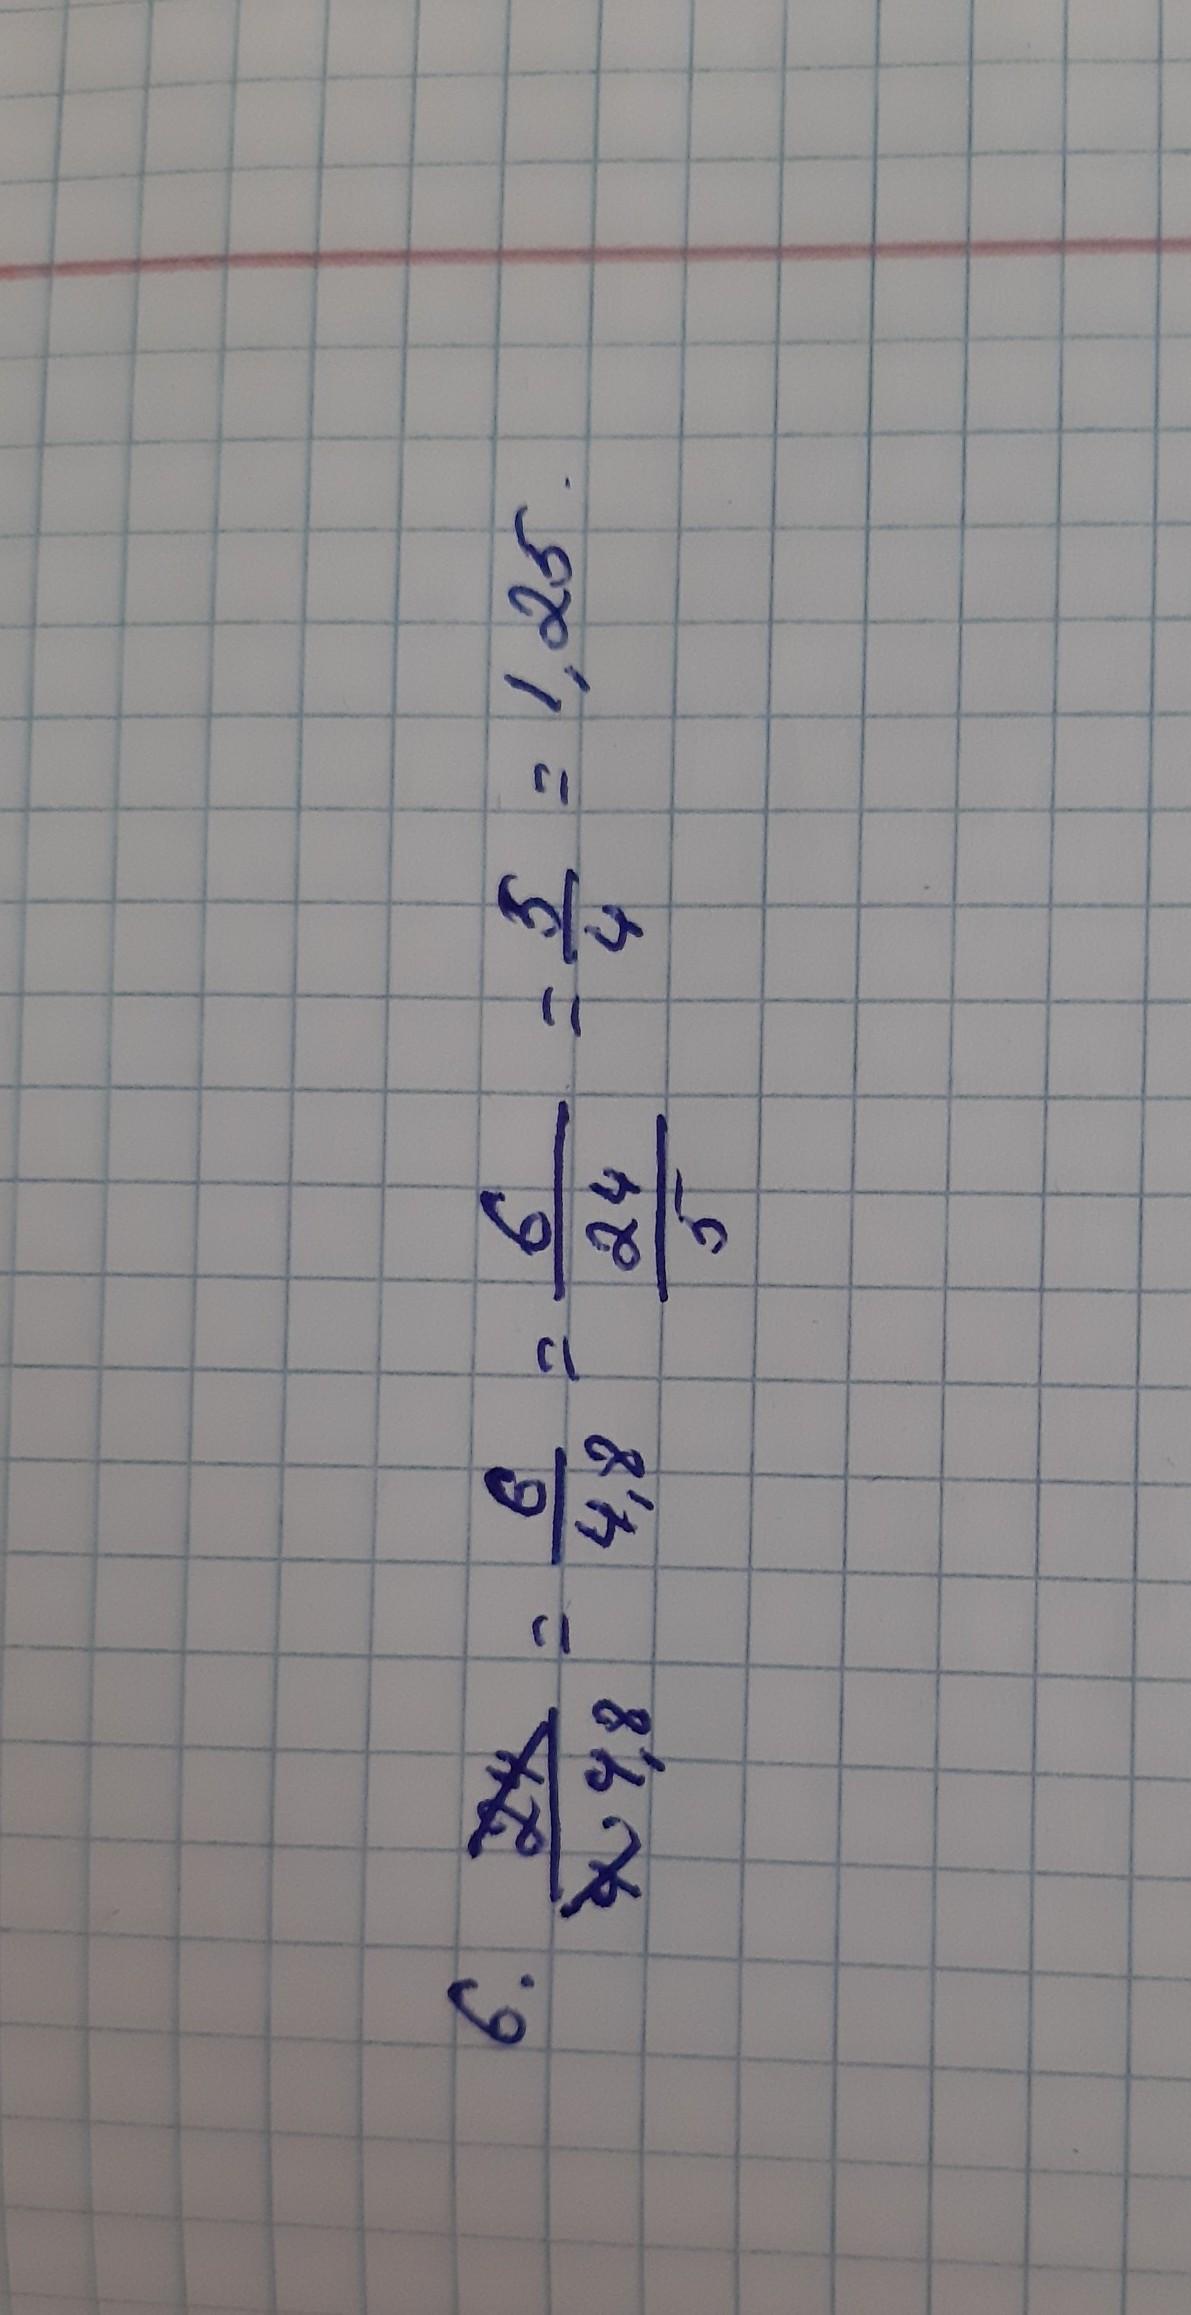 6. 24/4·4,8 = 6/4,8 = 6/(24/5) = 5/4 = 1,25.